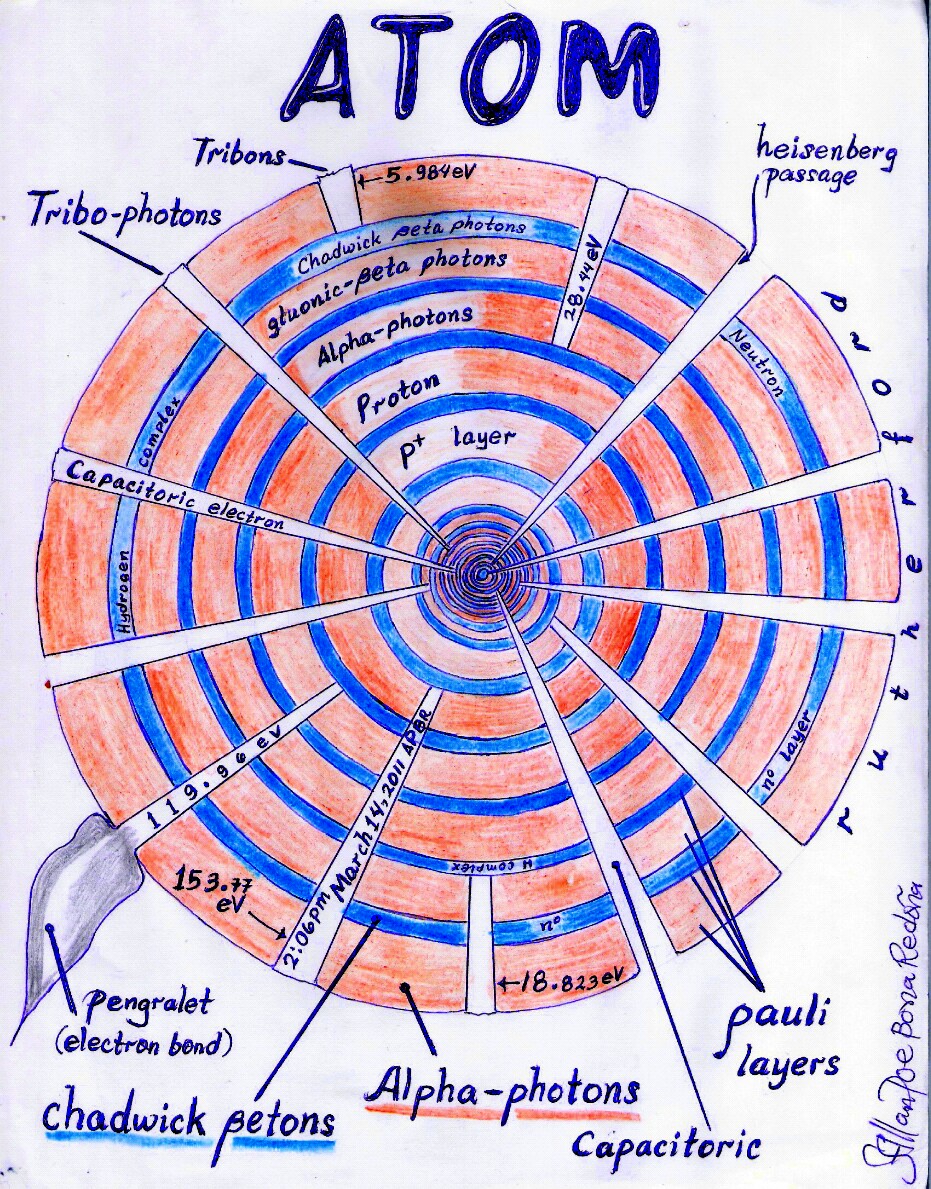 ATOM
Tribons
Tribo-photons
heisenberg
passage
←5.984eV
28.44eV
Chadwick βeta photons
gluonic-βeta photons
Alpha-photons
Proton
p⁺ layer
Neutron
complex
Capacitoric electron
Hydrogen
rutherford
n° layer
119.96 eV
153.77
eV
2:06pm March 14, 2011 APBR
H complex
n°
←18.823eV
pengralet
(electron bond)
pauli
layers
Chadwick βetons
Alpha-photons
Capacitoric